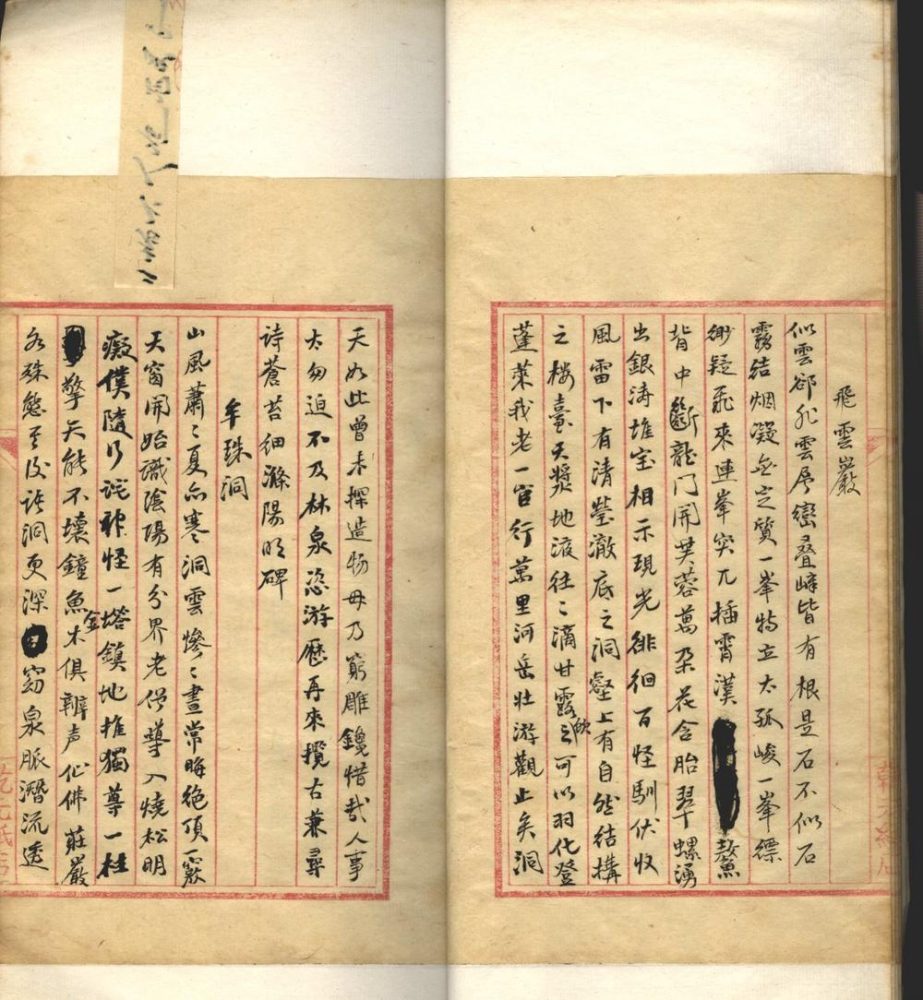 飛雲巖
似雲卻非雲層巒疊嶂皆有根是石不似石
霧結烟凝無定質一峯特立太孤峻一峯縹
緲疑飛來連峯突兀插霄漢鰲
背中斷龍門開芙蓉萬朵花含胎翠螺湧
出銀濤堆宝相示現光徘徊百怪馴伏收
風雷下有清瑩澈底之洞壑上有自然結構
之楼臺天漿地液往々滴甘露飲之可以羽化登
蓬萊我老一官行萬里河岳壮游觀止矣洞
天如此曾未探造物毋乃窮雕鑱惜哉人事
太匆迫不及林泉恣游歷再來攬古兼尋
诗蒼苔細滌陽明碑
牟珠洞
山風蕭々夏亦寒洞雲慘々晝常晦絕頂一竅
天窗開始識陰陽有分界老僧導入燒松明
癡僕隨行詫神怪一塔鎮地推獨尊一柱
擎天能不壞鐘魚木金俱辨声仙佛莊嚴
各殊態至後诸洞更深窈泉脈潛流透